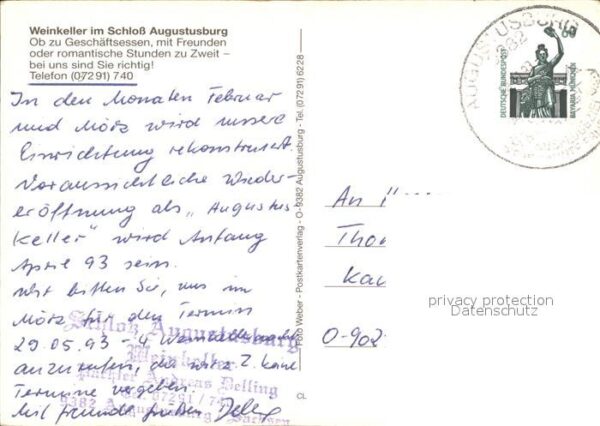 Weinkeller im Schloß Augustusburg
Ob zu Geschäftsessen, mit Freunden
oder romantische Stunden zu Zweit –
bei uns sind Sie richtig!
Telefon (07291) 740
In den Monaten Februar
und März wird unsere
Einrichtung rekonstruiert.
Voraussichtliche Wieder-
eröffnung als „Augustus
Keller" wird Anfang
April 93 sein.
Wir bitten Sie, uns im
März für den Termin
29.05.93 - 4
anzurufen, da wir z. Z. keine
Termine vergeben.
Mit freundl. Grüßen
Schloß Augustusburg
Weinkeller
Pächter Andreas Delling
Tel. 07291 / 740
9382 Augustusburg / Sachsen
Foto Weber - Postkartenverlag - O-9382 Augustusburg - Tel. (07291) 6228
CL
AUGUSTUSBURG
9382
60
DEUTSCHE BUNDESPOST
BAVARIA MÜNCHEN
An
Thor
Kau
O-902
privacy protection
Datenschutz